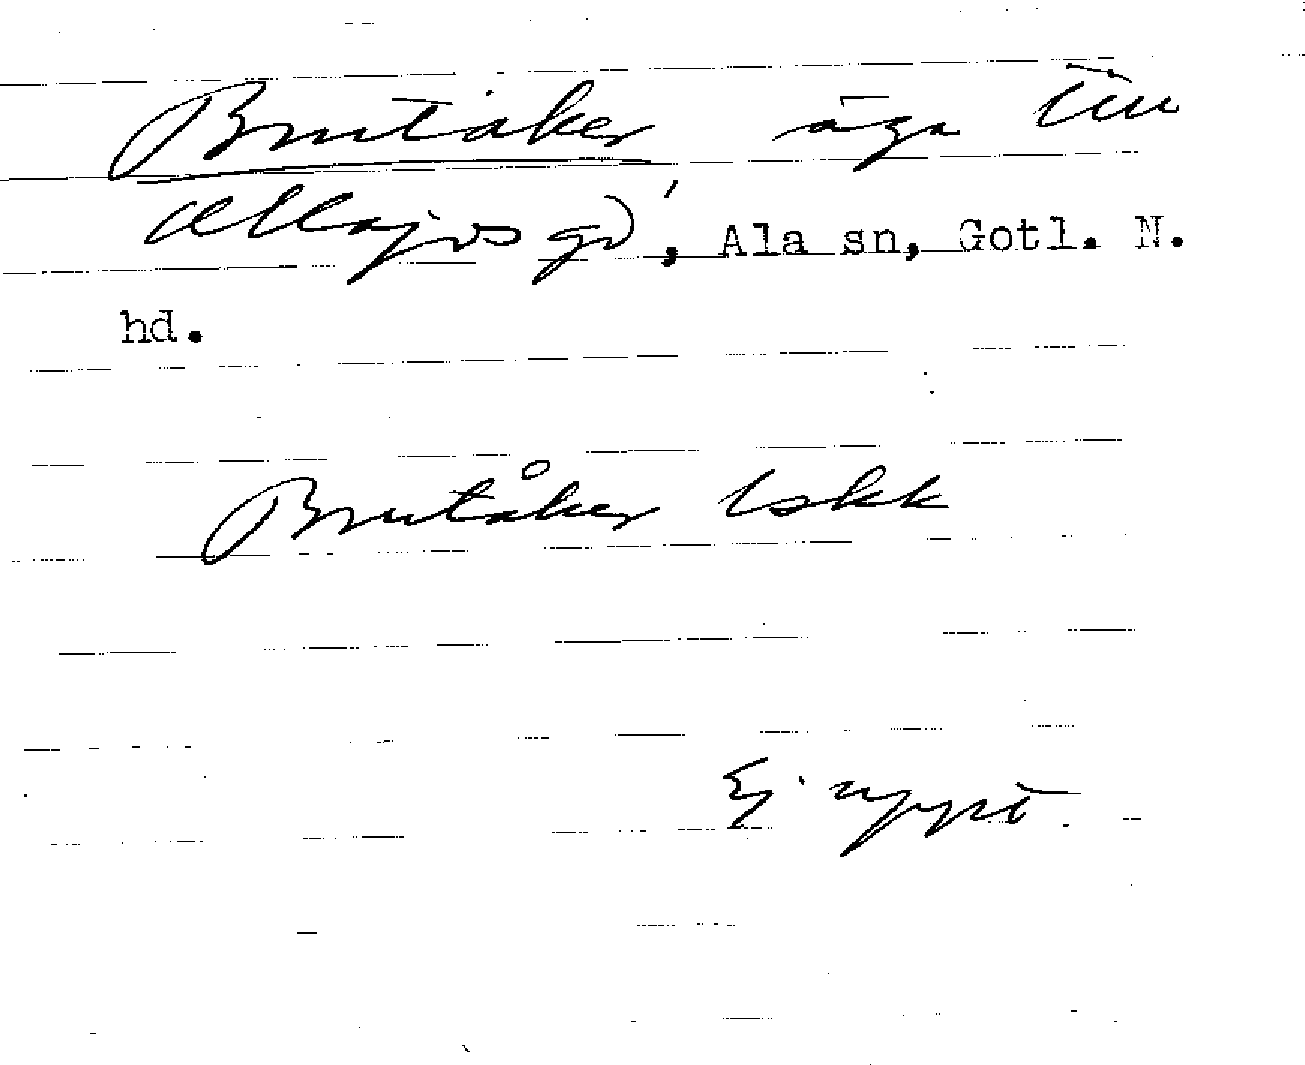 Brutåker äga till
Allajvs gd, Ala sn, Gotl. N.
hd.
Brutåker Lskk
Ej uppt.